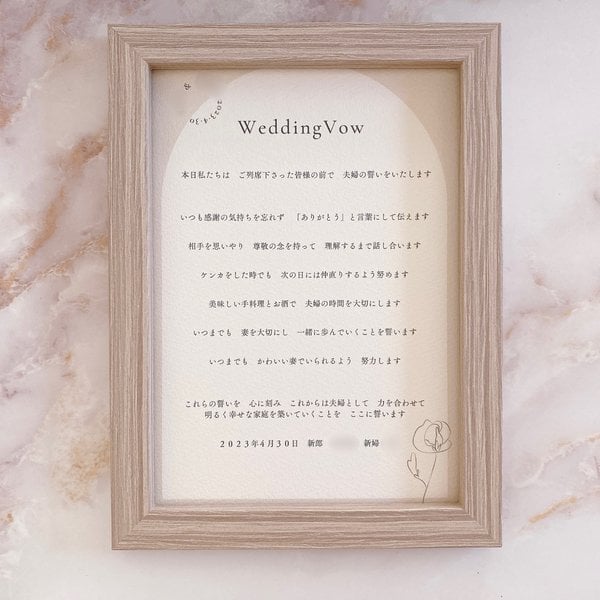 2023.4.30
WeddingVow
本日私たちは ご列席下さった皆様の前で 夫婦の誓いをいたします
いつも感謝の気持ちを忘れず 「ありがとう」と言葉にして伝えます
相手を思いやり 尊敬の念を持って 理解するまで話し合います
ケンカをした時でも 次の日には仲直りするよう努めます
美味しい手料理とお酒で 夫婦の時間を大切にします
いつまでも 妻を大切にし 一緒に歩んでいくことを誓います
いつまでも かわいい妻でいられるよう 努力します
これらの誓いを 心に刻み これからは夫婦として 力を合わせて
明るく幸せな家庭を築いていくことを ここに誓います
2023年4月30日 新郎 新婦